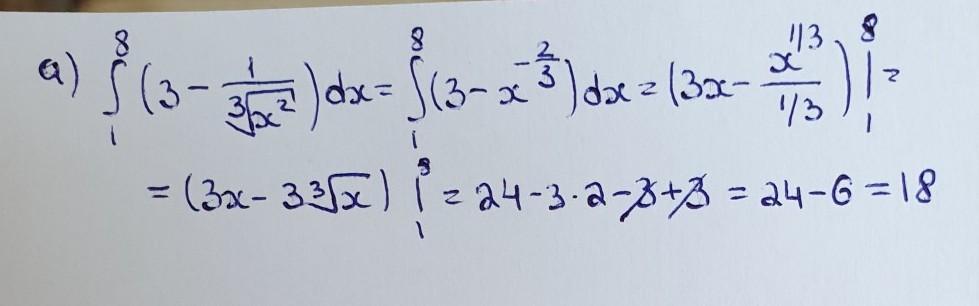 a) ∫₁⁸ (3 - 1/∛x²) dx = ∫₁⁸ (3 - x^(-2/3)) dx = (3x - x^(1/3)/(1/3)) |₁⁸ =
= (3x - 3∛x) |₁⁸ = 24 - 3·2 - 3 + 3 = 24 - 6 = 18